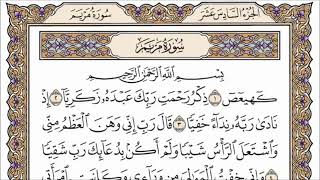 الجزء السادس عشر
سورة مريم
سورة مريم
بسم الله الرحمن الرحيم
كهيعص ١ ذكر رحمت ربك عبده زكريا ٢ إذ
نادى ربه نداء خفيا ٣ قال رب إني وهن العظم مني
واشتعل الرأس شيبا ولم أكن بدعائك رب شقيا